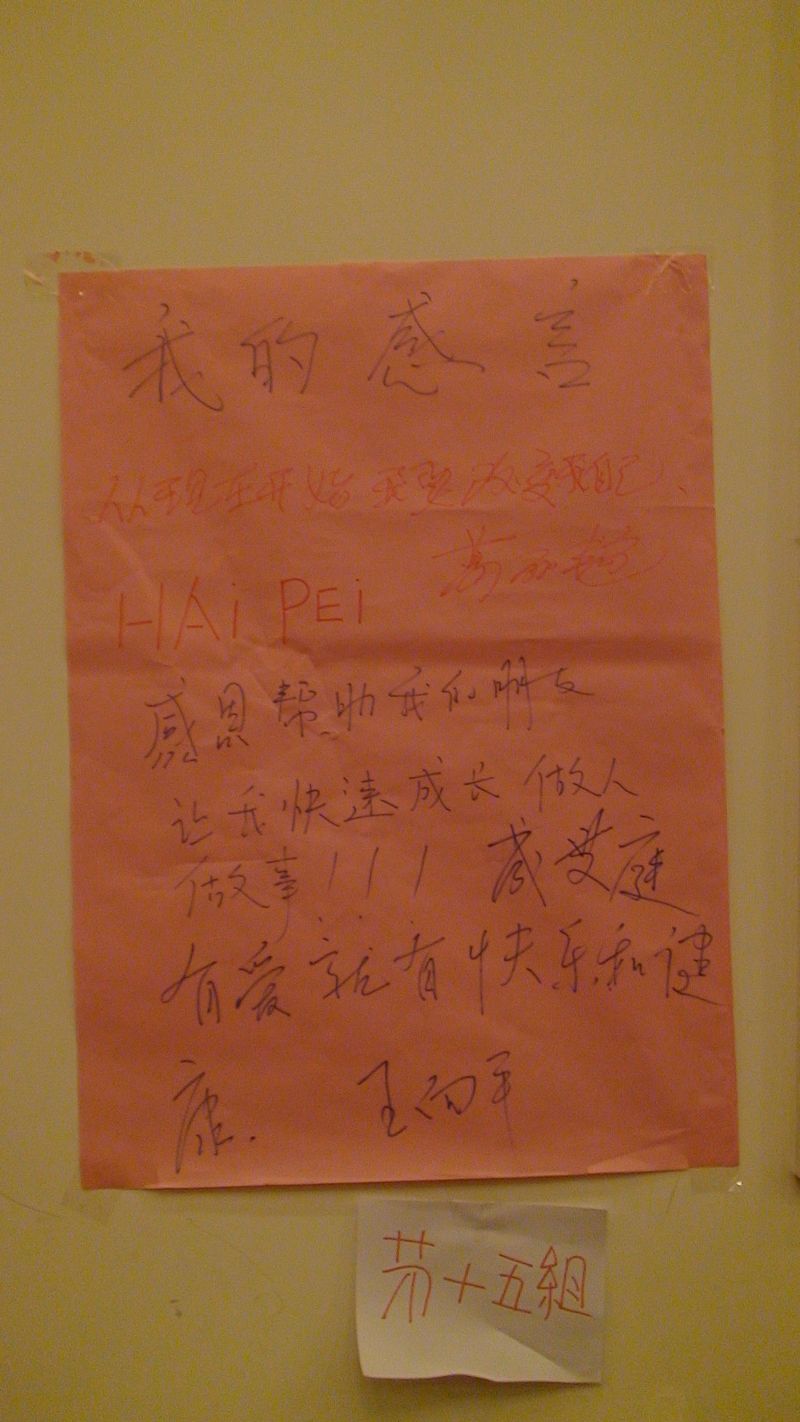 我的感言
从现在开始我要改变我自己、
HAi PEi
感恩帮助我们朋友
让我快速成长做人
做事!!!
有爱就有快乐和健
康. 王向平
芀十五組